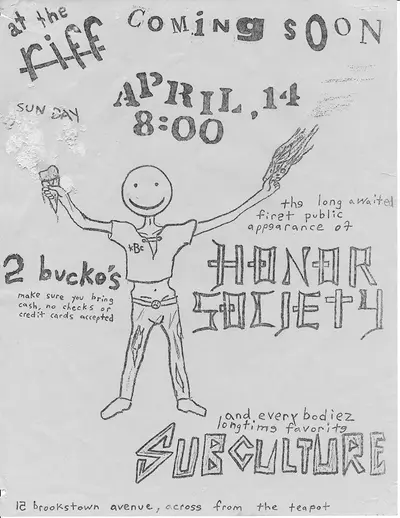 at the
riff
COMING SOON
SUNDAY
APRIL, 14
8:00
the long awaited
first public
appearance of
HONOR
SOCIETY
2 bucko's
make sure you bring
cash, no checks or
credit cards accepted
and every bodiez
longtime favorite
SUBCULTURE
12 brookstown avenue, across from the teapot